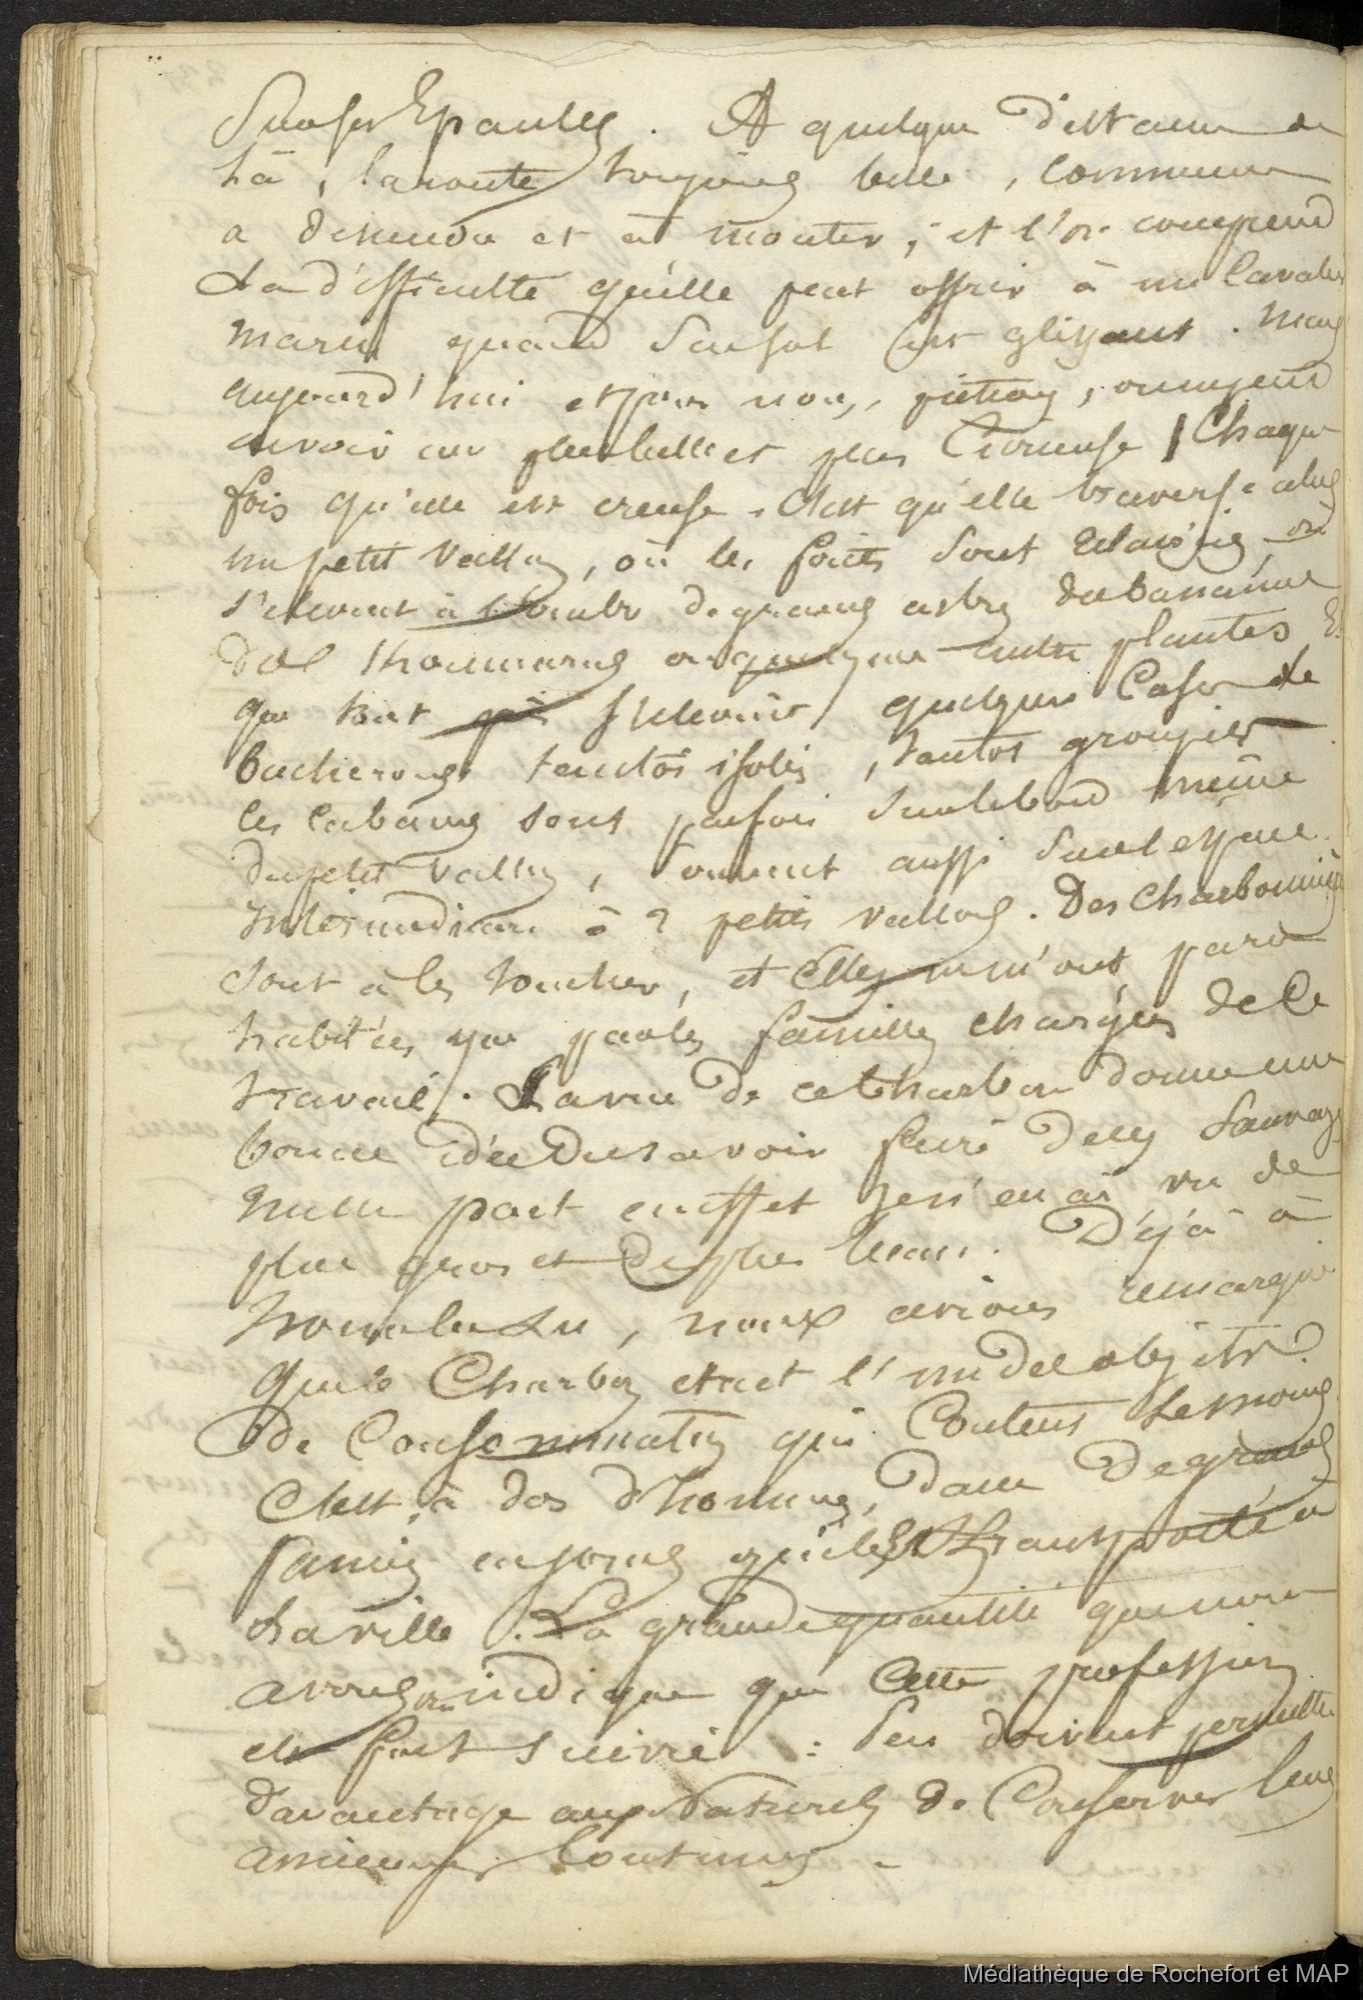 Sur ses Epaules. A quelque distance de
Là, la route toujours belle, commence
a descendre et à monter, et l'on comprend
La difficulté qu'elle peut offrir à un Cavalier
marin quand Son sol est glissant. Mais
aujourd'hui et pour nous, piétons,
avoir une plus belle et plus Chaque
fois qu'elle est creuse, C'est qu'elle traverse alors
un petit vallon, où les forêts sont Eclaircies, où
s'elevent à l'ombre de grands arbres des bananiers
des et quelques autres plantes
que tout quelques Cases de
bucherons tantôt isolés, tantot groupées
les cabanes sont parfois Sur le bord même
du petit vallon, souvent aussi Sur l'espace
intermédiaire à 2 petits vallons. Des Charbonnières
Sont à les toucher, et Elles ne m'ont paru
habitées que par les familles chargées de Ce
travail. La vue de ce Charbon donne une
bonne idée du savoir faire de ces Sauvages
nulle part en effet je n'en ai vu de
plus gros et de plus beau. Déjà à
Honolulu, nous avions remarqué
que le Charbon etait l'un des objets
de Consommation qui Coutent Le moins
C'est à dos d'hommes, dans de grands
paniers en joncs qu'il Est transporté à
La ville. La grande quantité que nous
avons vu indique que Cette profession
est fort suivie : Peu doivent permettre
davantage aux Naturels de Conserver leurs
anciennes Coutumes.
Médiathèque de Rochefort et MAP